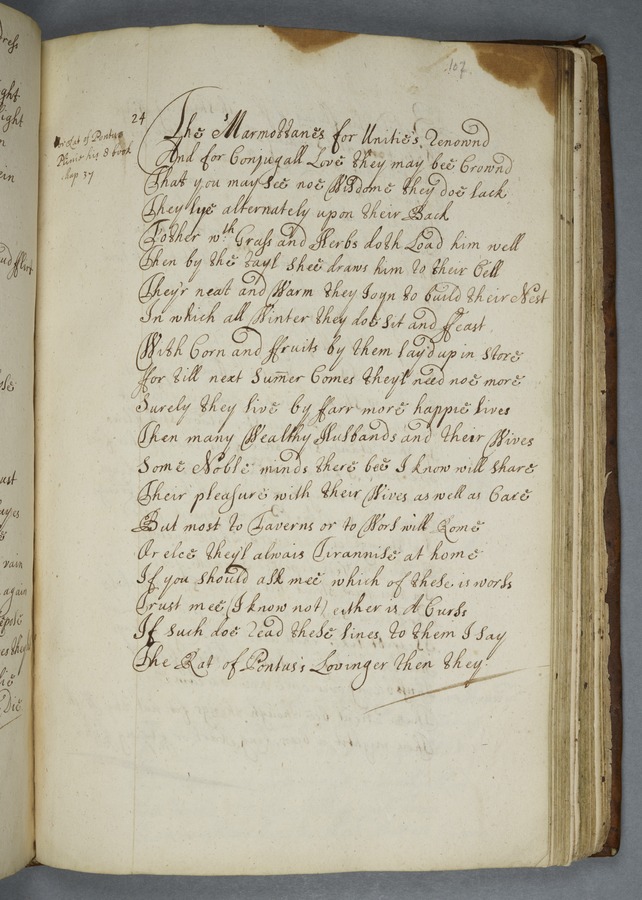 107
24
or Rat of Pontus
Plinie his 8 book
Chap 37
The Marmottanes for Unitie's Renownd
And for Conjugall Love they may bee Crownd
That you may see noe Wisdome they doe lack
They lye alternately upon their Back
T'other wth Grass and Herbs doth Load him well
Then by the tayl shee draws him to their Cell
They'r neat and Warm they Joyn to build their Nest
In which all Winter they doe sit and ffeast
With Corn and ffruits by them lay'd up in store
ffor till next Sumer Comes they'l need noe more
Surely they live by ffarr more happie lives
Then many Wealthy Husbands and their Wives
Some Noble minds there bee I know will share
Their pleasure with their Wives as well as Care
But most to Taverns or to Wors will Rome
Or elce they'l alwais Tirannise at home
If you should ask mee which of these is wors
Trust mee (I know not) either is A Curss
If such doe read these lines, to them I say
The Rat of Pontus's Lovinger then they